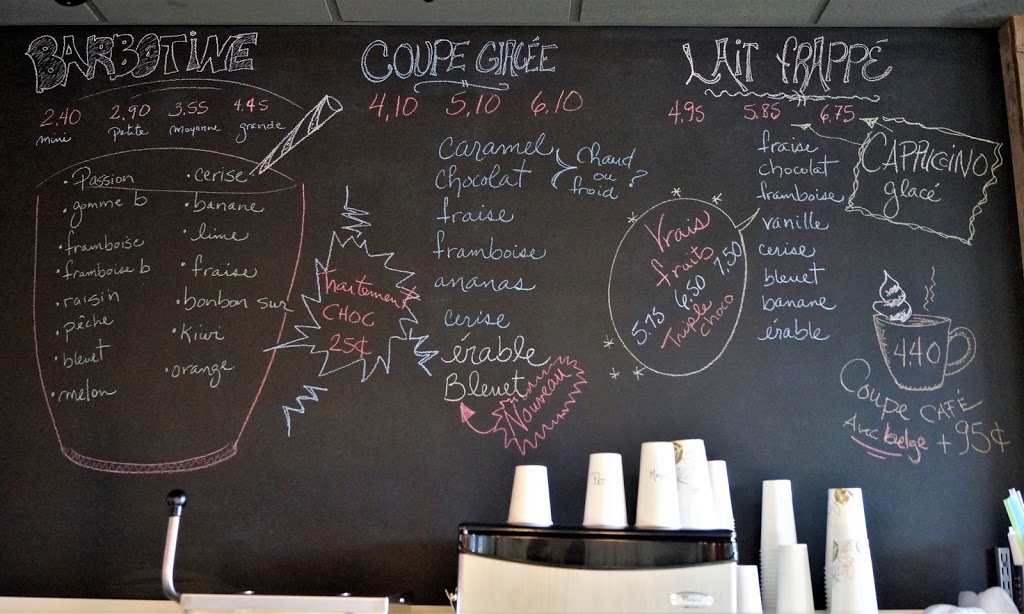 BARBOTINE
2.40 2.90 3.55 4.45
mini Petite moyenne grande
• Passion
• gomme b
• framboise
• framboise b
• raisin
• pêche
• bleuet
• melon
• cerise
• banane
• lime
• fraise
• bonbon sur
• Kiwi
• orange
traitement
CHOC
25¢
COUPE GLACÉE
4,10 5,10 6,10
caramel
chocolat
chaud
ou
froid ?
fraise
framboise
ananas
cerise
érable
Bleuet
Nouveau
LAIT FRAPPÉ
4.95 5.85 6.75
fraise
chocolat
framboise
vanille
cerise
bleuet
banane
érable
Vrais
fruits
5.75 6.50 7.50
Triple
choco
CAPPUCCINO
glacé
4.40
Coupe CAFÉ
Avec belge + 95¢